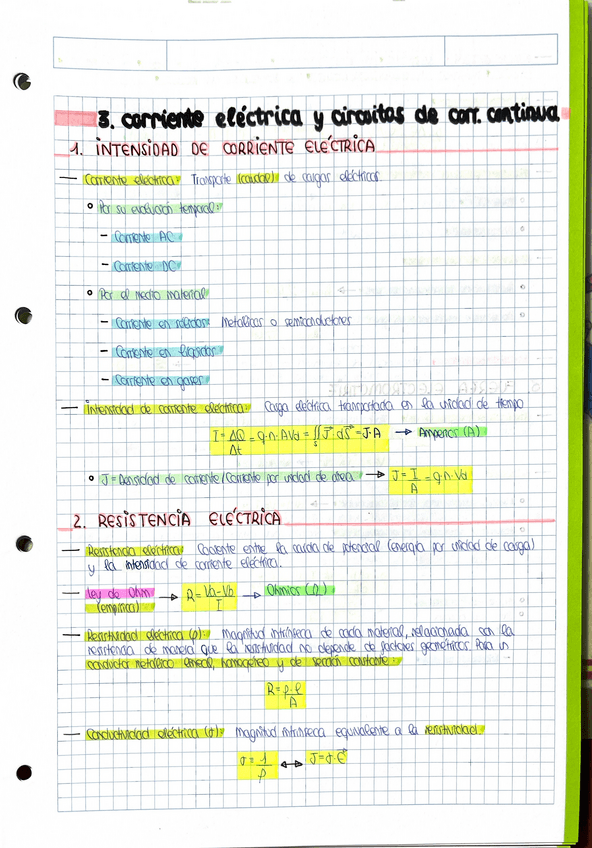 3. corriente eléctrica y circuitos de corr. continua
1. INTENSIDAD DE CORRIENTE ELÉCTRICA
— Corriente eléctrica: Transporte (caudal) de cargas eléctricas.
° Por su evolución temporal:
- Corriente AC
- Corriente DC
° Por el medio material
- Corriente en sólidos: Metálicos o semiconductores
- Corriente en líquidos
- Corriente en gases
— Intensidad de corriente eléctrica: Carga eléctrica transportada en la unidad de tiempo
I = ΔQ/Δt = q·n·A·Vd = ∬s J⃗ dS⃗ = J·A → Amperios (A)
° J = Densidad de corriente/Corriente por unidad de área → J = I/A = q·n·Vd
2. RESISTENCIA ELÉCTRICA
— Resistencia eléctrica: Cociente entre la caída de potencial (energía por unidad de carga)
y la intensidad de corriente eléctrica.
— Ley de Ohm → R = Va-Vb/I → Ohmios (Ω)
(empírica)
— Resistividad eléctrica (ρ): Magnitud intrínseca de cada material, relacionada con la
resistencia de manera que la resistividad no depende de factores geométricos. Para un
conductor metálico lineal, homogéneo y de sección constante:
R = ρ·ℓ/A
— Conductividad eléctrica (σ): Magnitud intrínseca equivalente a la resistividad.
σ = 1/ρ ↔ J = σ·E⃗